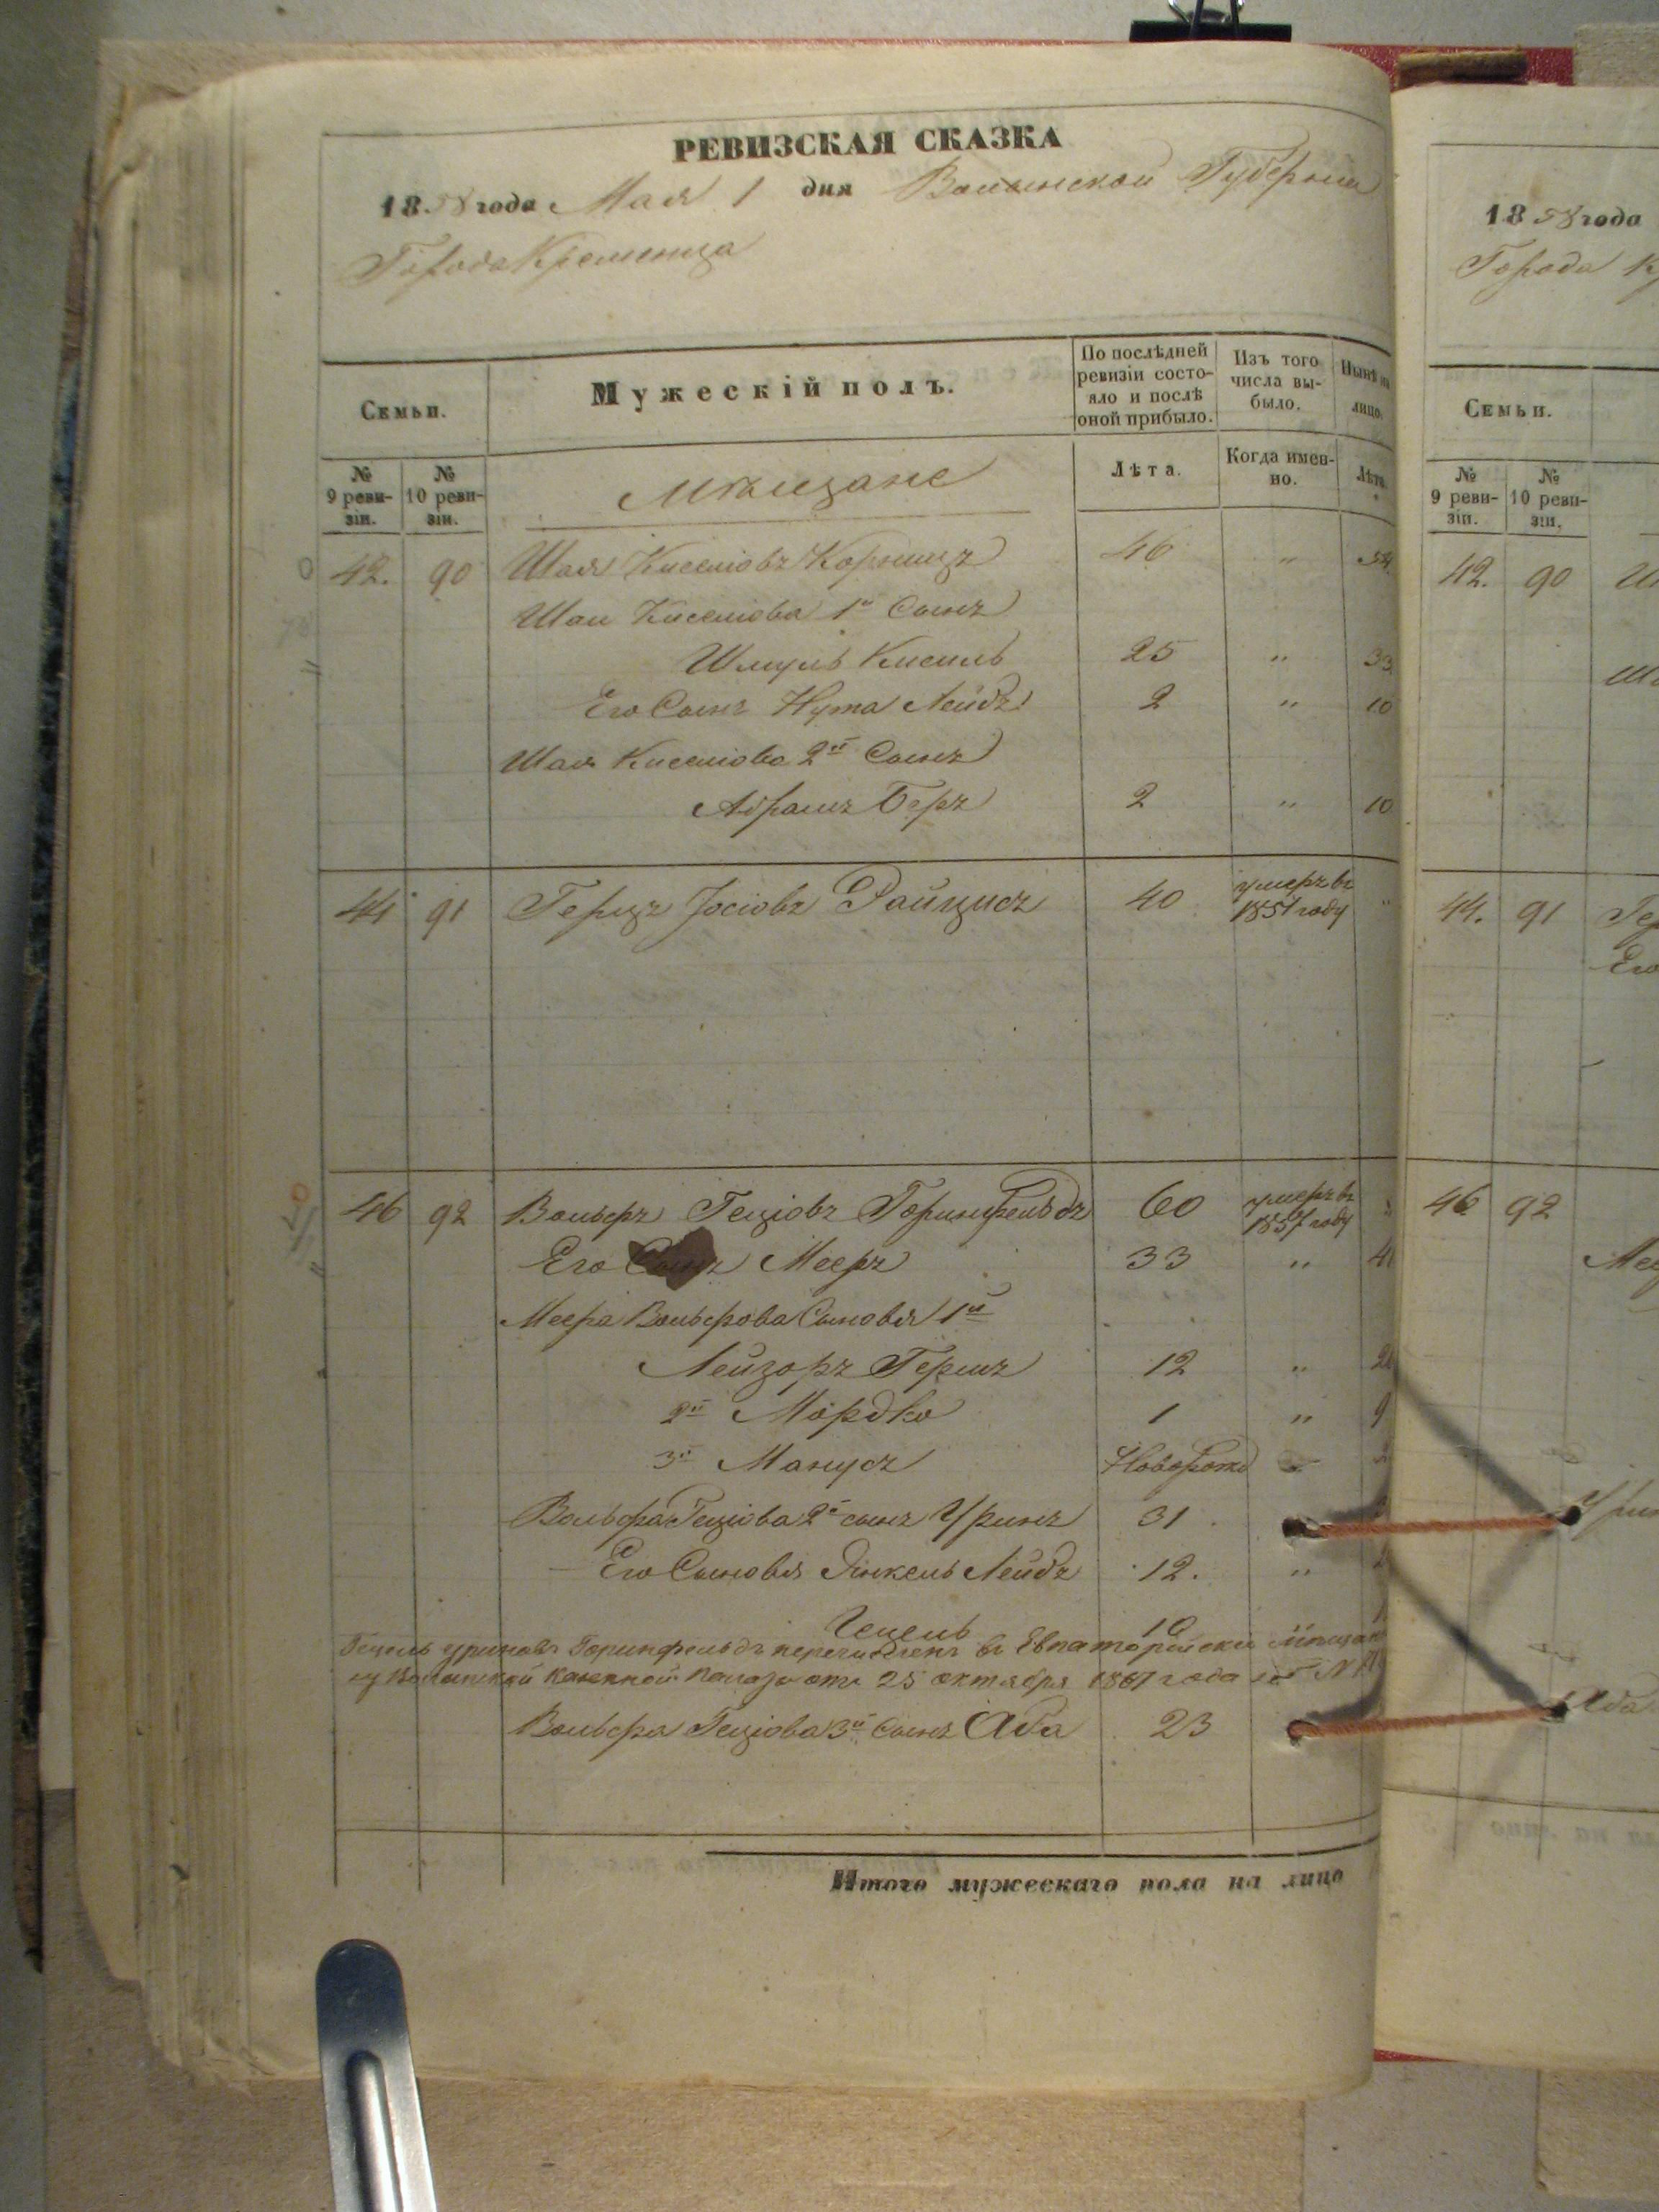 РЕВИЗСКАЯ СКАЗКА
1858 года Мая 1 дня Волынской Губернии
Города Кременца
Семьи.
Мужескій полъ.
По послѣдней ревизіи состояло и послѣ оной прибыло.
Изъ того числа выбыло.
Нынѣ на лицо.
№ 9 ревизіи.
№ 10 ревизіи.
Мѣщане
Лѣта.
Когда именно.
Лѣта.
42. 90 Шая Киселіовъ Корницъ 46 " 54
Шаи Киселіова 1й Сынъ
Шмуль Кисиль 25 " 33
Его Сынъ Нута Лейбъ 2 " 10
Шая Киселіова 2й Сынъ
Абрамъ Беръ 2 " 10
44 91 Герцъ Іосіовъ Райцисъ 40 умеръ въ 1851 году "
46 92 Вольфъ Геціовъ Горинфельдъ 60 умеръ въ 1857 году "
Его Сынъ Мееръ 33 " 41
Меера Вольфова Сыновья 1й
Лейзоръ Гершъ 12 " 20
2й Мордко 1 " 9
3й Манусъ Новорожд
Вольфа Геціова 2й сынъ Уринъ 31
Его Сыновья Янкель Лейбъ 12. "
Гецель 10
Гецель Уриновъ Горинфельдъ перечисленъ въ Евпаторійски Мѣщан
Волынской Казенной Палаты отъ 25 октября 1867 года за №
Вольфа Геціова 3й Сынъ Аба 23
Итого мужескаго пола на лицо
1858 года
Города Кр
Семьи.
№ 9 ревизіи.
№ 10 ревизіи.
42. 90
44. 91
Его
46 92
Аба